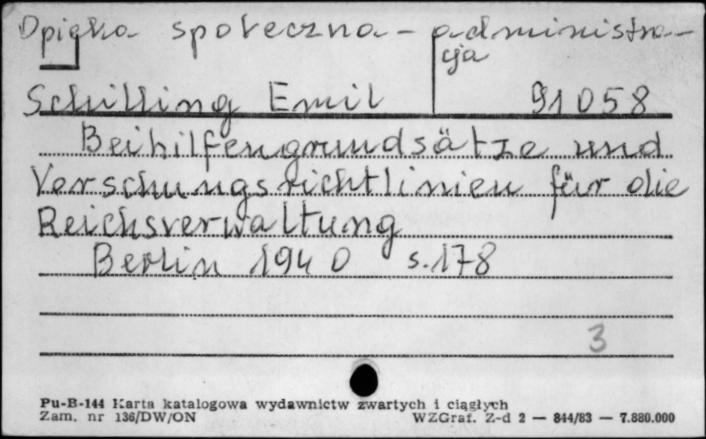 Opieka społeczna - administra-
cja
Schilling Emil 91058
Beihilfengrundsätze und
Vorschungsrichtlinien für die
Reichsverwaltung
Berlin 1940 s.178
3
Pu-B-144 Karta katalogowa wydawnictw zwartych i ciągłych
Zam. nr 136/DW/ON WZGraf. Z-d 2 — 844/83 — 7.880.000